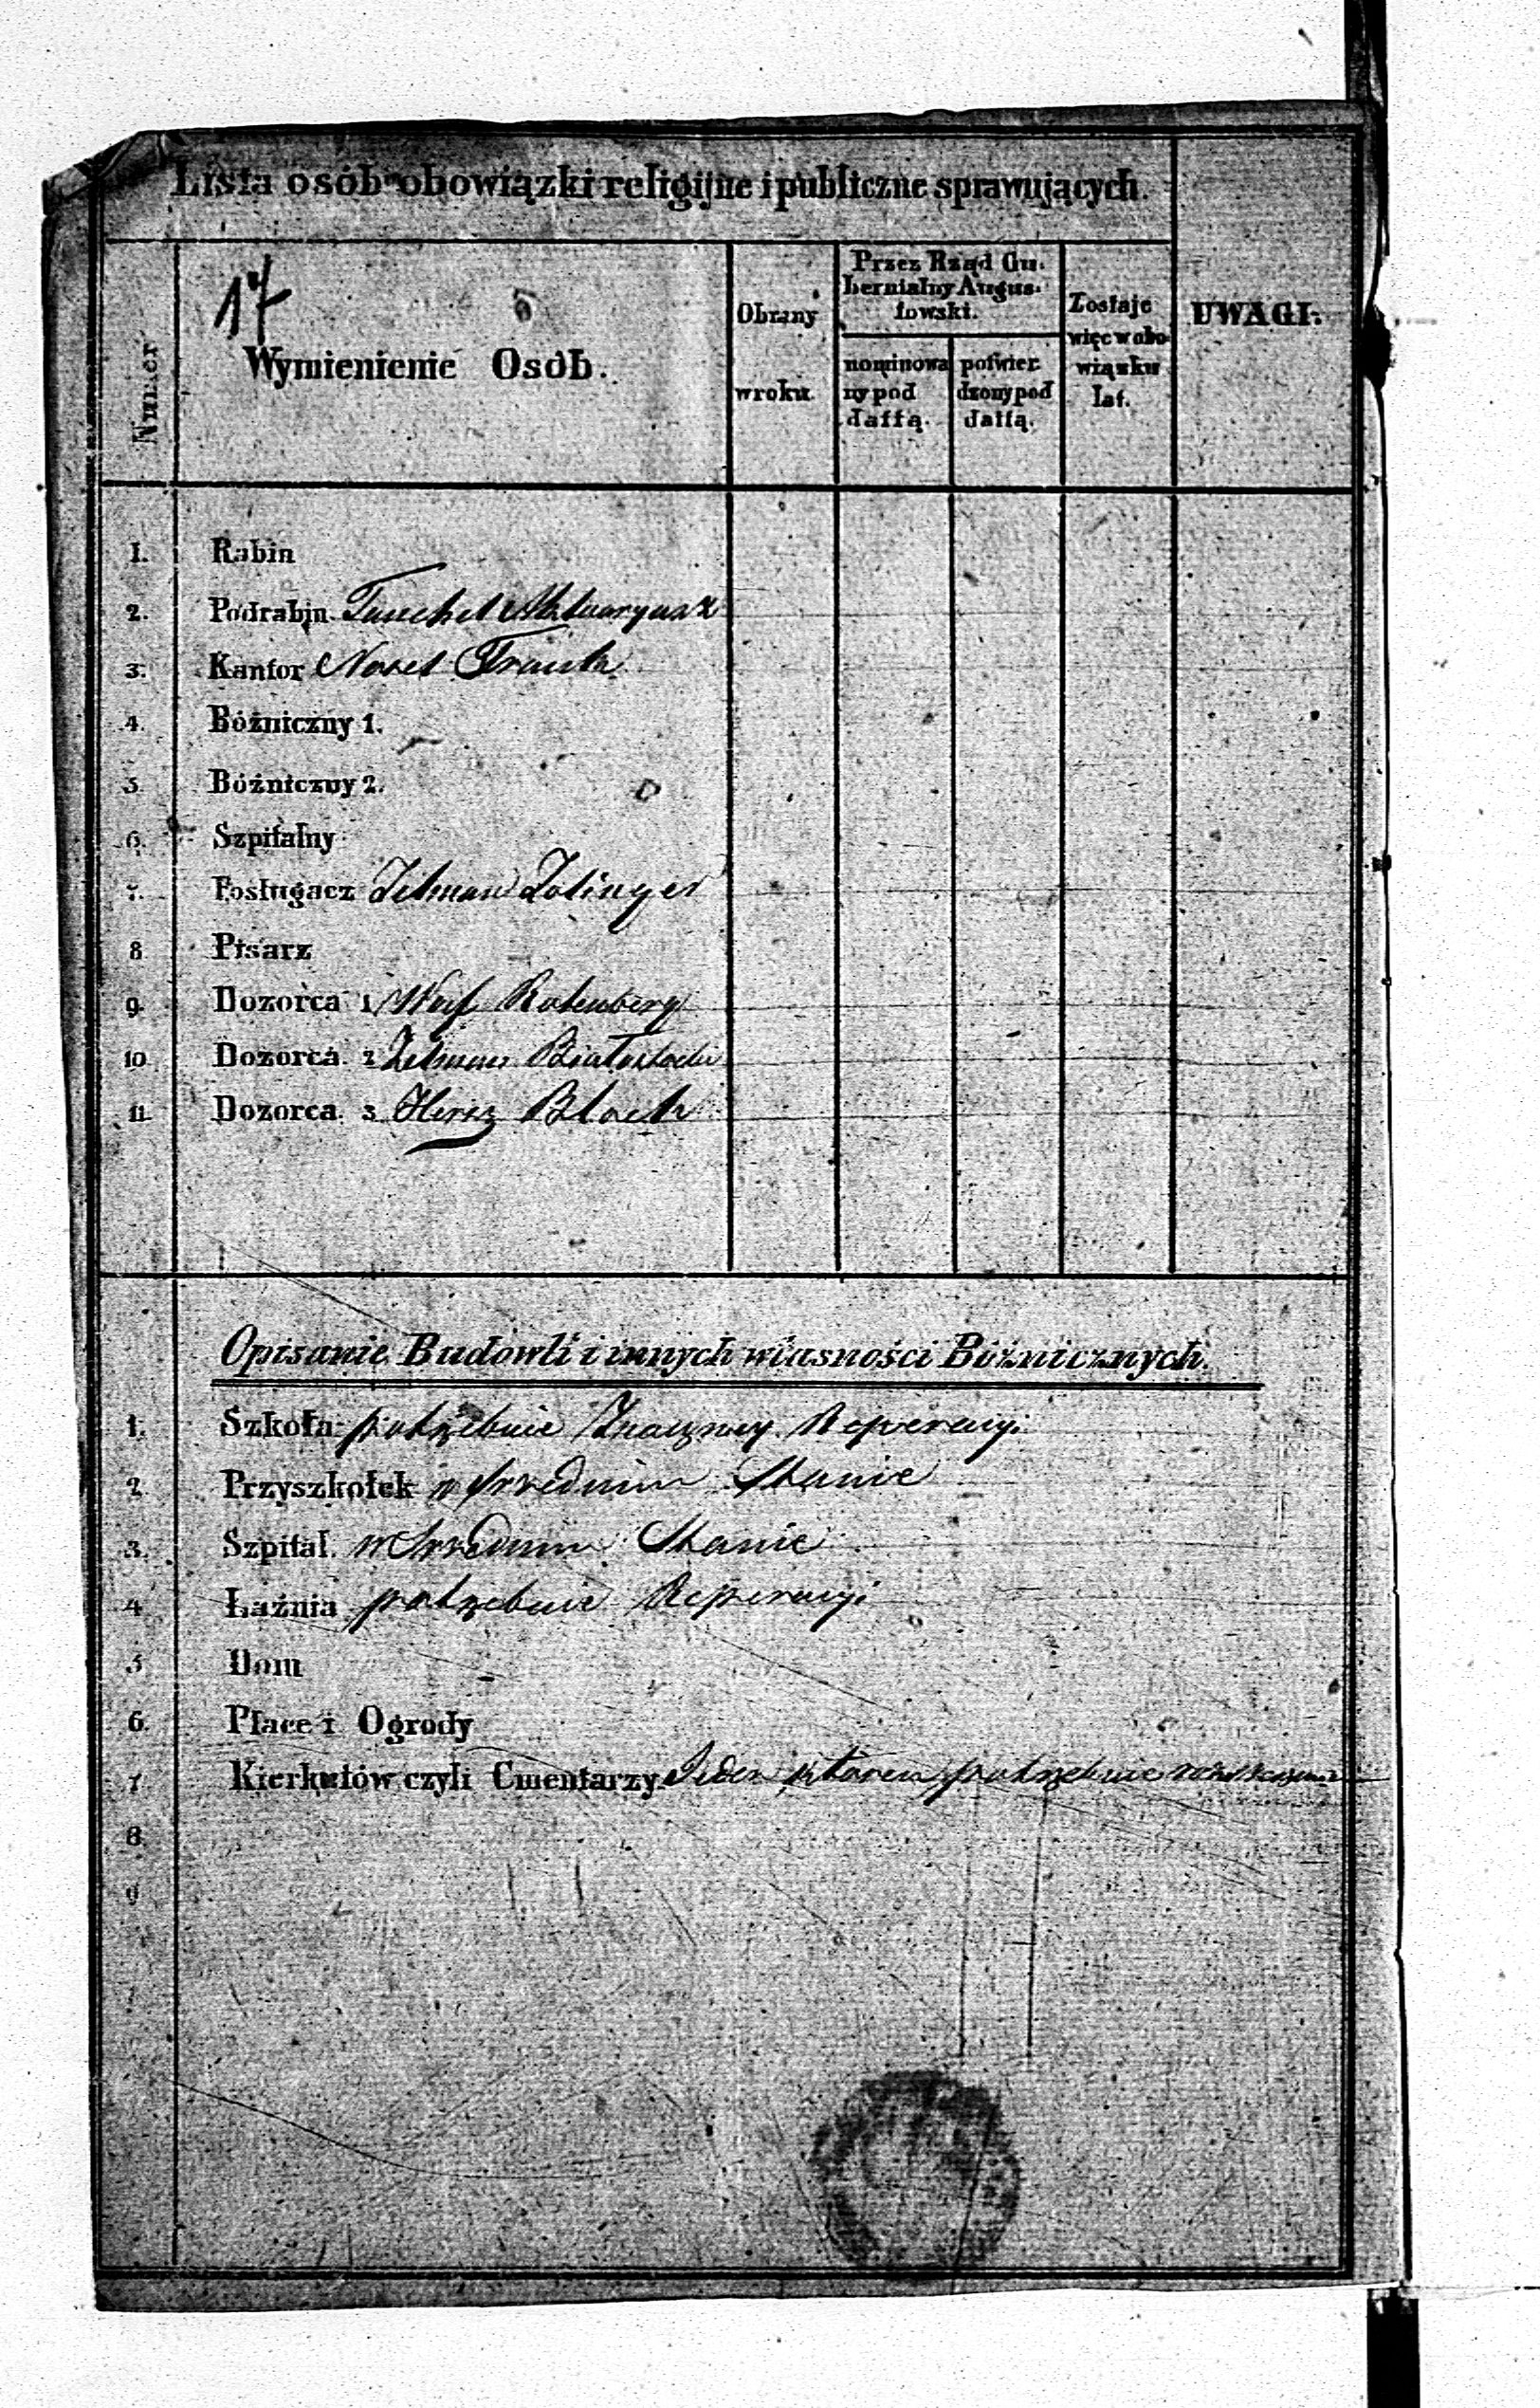 Lista osób obowiązki religijne i publiczne sprawujących.
17
Numer
Wymienienie Osób.
Obrany w roku.
Przez Rząd Gu-
bernialny Augus-
towski.
nominowa
ny pod
dattą.
potwier
dzony pod
dattą.
Zostaje
więc w obo-
wiązku
lat.
UWAGI:
1. Rabin
2. Podrabin
3. Kantor Nosel Frank
4. Bóżniczny 1.
5. Bóżniczny 2.
6. Szpitalny
7. Posługacz Zelman Zolinger
8 Pisarz
9. Dozorca 1 Wolf Rotenberg
10 Dozorca. 2 Zelman Białostocki
11 Dozorca. 3 Hersz Bloch
Opisanie Budowli i innych własności Bóżnicznych.
1. Szkoła potrzebuie Znaczney Reperacyi
2 Przyszkołek w srzednim Stanie
3. Szpital. w Srzednim Stanie
4 Łaźnia potrzebuie Reperacyi
5 Dom
6. Place i Ogrody
7 Kierkutów czyli Cmentarzy. Jeden który potrzebuie
8.
9